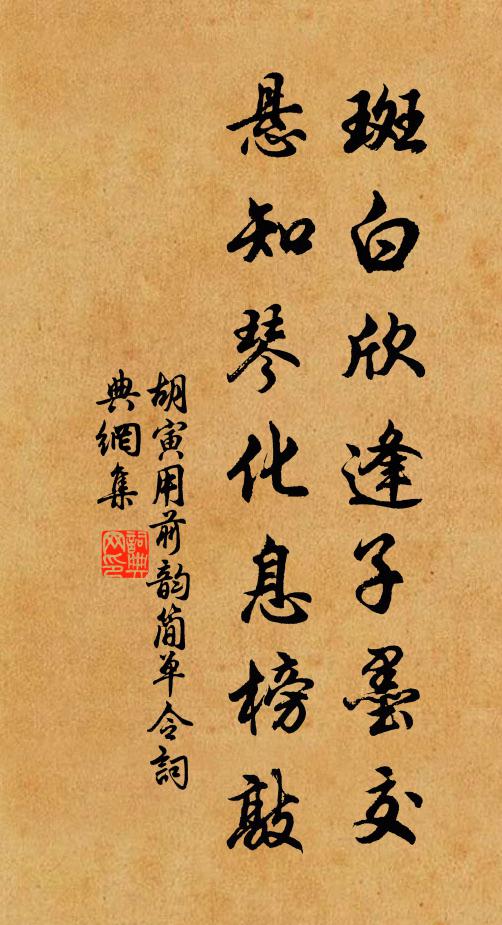 斑白欣逢子墨交
悬知琴化息榜敲
胡寅用前韵简单令詞
典網集
詞典网印